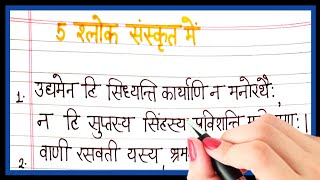 5 श्लोक संस्कृत में
1. उद्यमेन हि सिध्यन्ति कार्याणि न मनोरथैः,
न हि सुप्तस्य सिंहस्य प्रविशन्ति
2. वाणी रसवती यस्य,